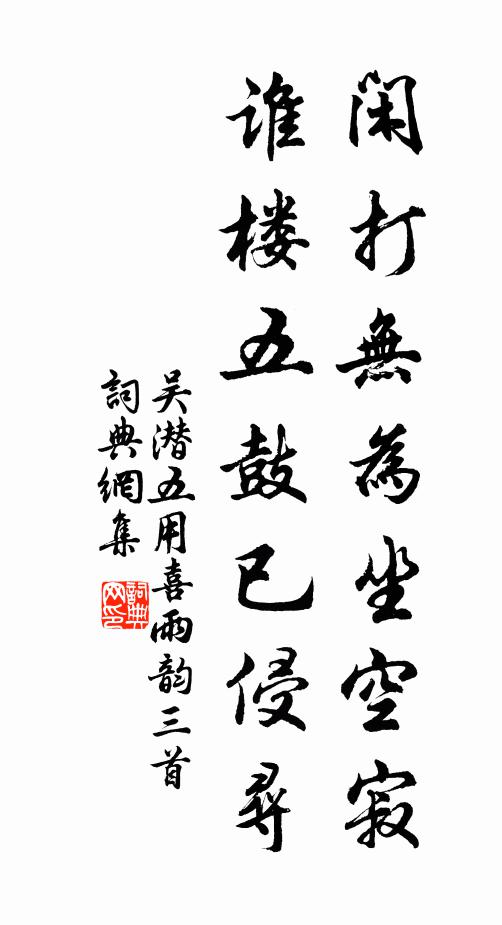 闲打無為坐空寂
谁楼五鼓已侵尋
吴潜五用喜雨韵三首
詞典網集
詞典网印